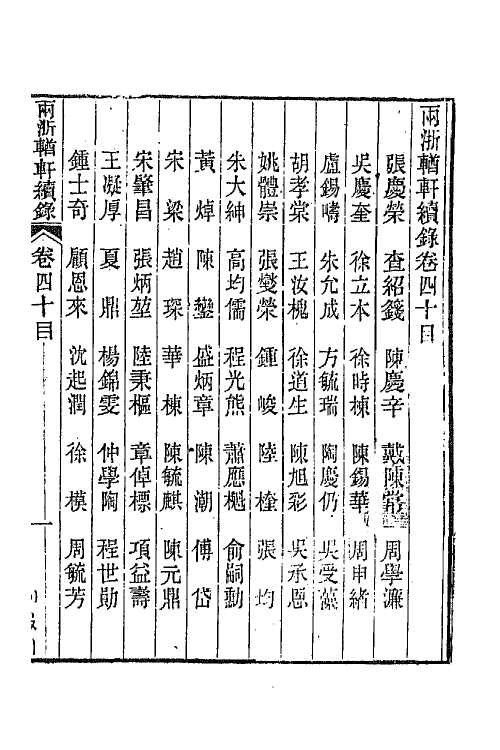 兩浙輶軒續錄卷四十目
張慶榮 查紹籛 陳慶辛 戴陳常 周學濂
吳慶奎 徐立本 徐時棟 陳錫華 周申緒
盧錫疇 朱允成 方毓瑞 陶慶仍 吳受藻
胡孝棠 王汝槐 徐道生 陳旭彩 吳承恩
姚體崇 張燮榮 鍾峻 陸楏 張均
朱大紳 高均儒 程光熊 蕭應櫆 俞嗣勳
黃焯 陳鑾 盛炳章 陳潮 傅岱
宋梁 趙琛 華棟 陳毓麒 陳元鼎
宋肇昌 張炳堃 陸秉樞 章倬標 項益壽
王凝厚 夏鼎 楊錦雯 仲學陶 程世勛
鍾士奇 顧恩來 沈起潤 徐模 周毓芳
兩浙輶軒續錄 卷四十目 一